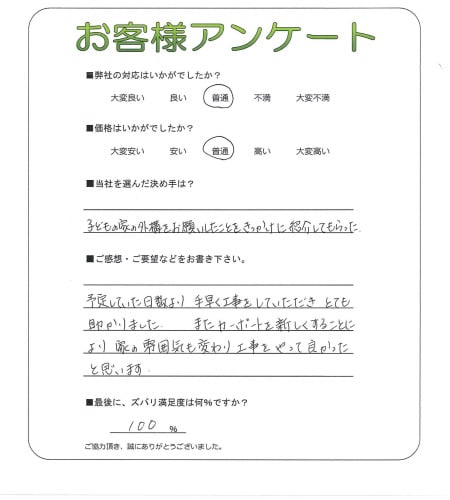 お客様アンケート
■弊社の対応はいかがでしたか？
大変良い 良い 普通 不満 大変不満
■価格はいかがでしたか？
大変安い 安い 普通 高い 大変高い
■当社を選んだ決め手は？
子どもの家の外構をお願いしたことをきっかけに紹介してもらった
■ご感想・ご要望などをお書き下さい。
予定していた日数より 手早く工事をしていただき とても
助かりました。 またカーポートを新しくすることに
より 家の雰囲気も変わり工事をやって良かった
と思います
■最後に、ズバリ満足度は何%ですか？
100 %
ご協力頂き、誠にありがとうございました。